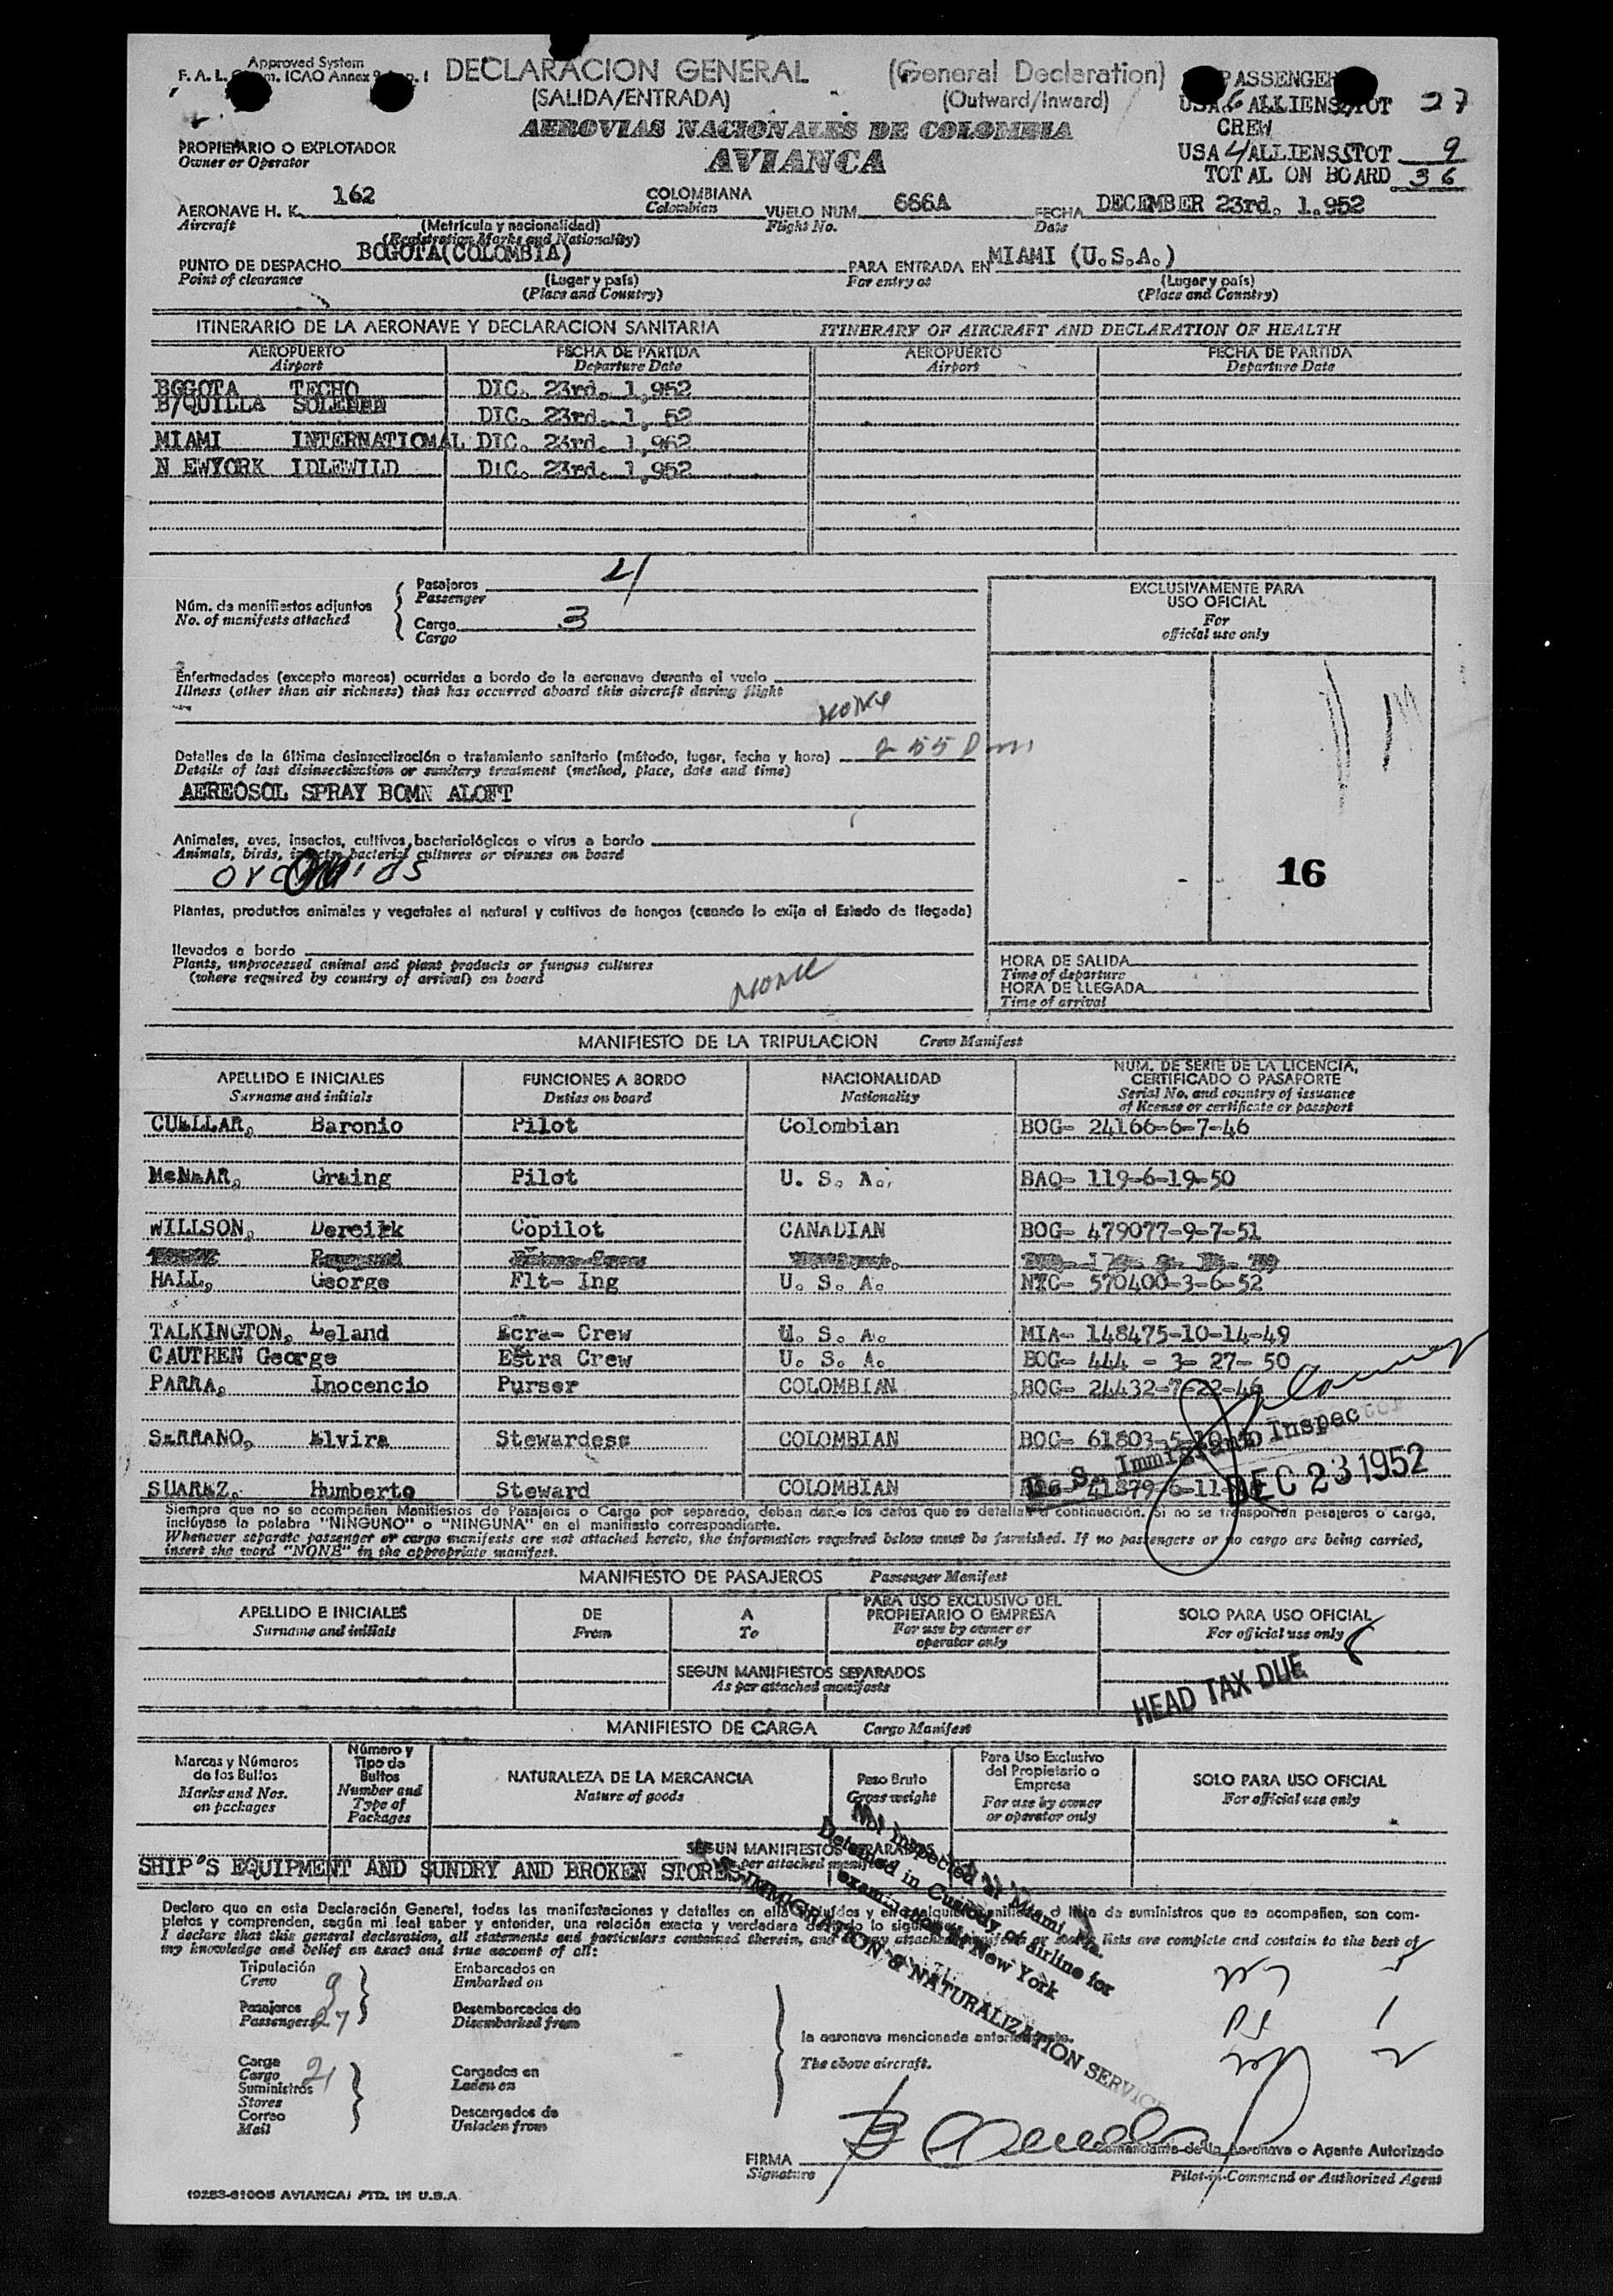 Approved System
F. A. L. ICAO Annex 9
DECLARACION GENERAL (General Declaration)
(SALIDA/ENTRADA) (Outward/Inward)
PASSENGER
USA 6 ALLIENS TOT 27
CREW
USA 4 ALLIENS 5 TOT 9
TOTAL ON BOARD 36
AEROVIAS NACIONALES DE COLOMBIA
AVIANCA
PROPIETARIO O EXPLOTADOR
Owner or Operator
AERONAVE H. K. 162 COLOMBIANA VUELO NUM. 666A FECHA DECEMBER 23rd, 1.952
Aircraft Colombian Flight No. Date
(Matrícula y nacionalidad)
(Registration Marks and Nationality)
PUNTO DE DESPACHO BOGOTA(COLOMBIA) PARA ENTRADA EN MIAMI (U.S.A.)
Point of clearance For entry at
(Lugar y país) (Lugar y país)
(Place and Country) (Place and Country)
ITINERARIO DE LA AERONAVE Y DECLARACION SANITARIA ITINERARY OF AIRCRAFT AND DECLARATION OF HEALTH
AEROPUERTO FECHA DE PARTIDA AEROPUERTO FECHA DE PARTIDA
Airport Departure Date Airport Departure Date
BOGOTA TECHO DIC. 23rd. 1,952
B/QUILLA DIC. 23rd. 1, 52
MIAMI INTERNATIONAL DIC. 23rd. 1,952
N EWYORK IDLEWILD DIC. 23rd. 1,952
Núm. de manifiestos adjuntos
No. of manifests attached
Pasajeros
Passenger
Carga 3
Cargo
EXCLUSIVAMENTE PARA
USO OFICIAL
For
official use only
Enfermedades (excepto mareos) ocurridas a bordo de la aeronave durante el vuelo
Illness (other than air sickness) that has occurred aboard this aircraft during flight
None
Detalles de la última desinsectización o tratamiento sanitario (método, lugar, fecha y hora) 2 55 Pm
Details of last disinsectization or sanitary treatment (method, place, date and time)
AEREOSOL SPRAY BOMN ALOFT
Animales, aves, insectos, cultivos bacteriológicos o virus a bordo
Animals, birds, insects, bacterial cultures or viruses on board
16
Plantas, productos animales y vegetales al natural y cultivos de hongos (cuando lo exija el Estado de llegada)
llevados a bordo
Plants, unprocessed animal and plant products or fungus cultures
(where required by country of arrival) on board
None
HORA DE SALIDA
Time of departure
HORA DE LLEGADA
Time of arrival
MANIFIESTO DE LA TRIPULACION Crew Manifest
APELLIDO E INICIALES FUNCIONES A BORDO NACIONALIDAD NUM. DE SERIE DE LA LICENCIA,
CERTIFICADO O PASAPORTE
Surname and initials Duties on board Nationality Serial No. and country of issuance
of license or certificate or passport
CUELLAR, Baronio Pilot Colombian BOG- 24166-6-7-46
McNEAR, Graing Pilot U. S. A. BAQ- 119-6-19-50
WILLSON, Copilot CANADIAN BOG- 479077-9-7-51
HALL, George Flt- Ing U. S. A. NYC- 570400-3-6-52
TALKINGTON, Leland Crew U. S. A. MIA- 148475-10-14-49
CAUTHEN George Extra Crew U. S. A. BOG- 444 - 3- 27- 50
PARRA, Inocencio Purser COLOMBIAN BOG- 24432-7-22-46
SERRANO, Elvira Stewardess COLOMBIAN BOG- 61803-5-
SUAREZ, Humberto Steward COLOMBIAN 41879-6-11-
U. S. Immigrant Inspector
DEC 23 1952
Siempre que no se acompañen Manifiestos de Pasajeros o Carga por separado, deban darse los datos que se detallan a continuación. Si no se transportan pasajeros o carga,
inclúyase la palabra "NINGUNO" o "NINGUNA" en el manifiesto correspondiente.
Whenever separate passenger or cargo manifests are not attached hereto, the information required below must be furnished. If no passengers or no cargo are being carried,
insert the word "NONE" in the appropriate manifest.
MANIFIESTO DE PASAJEROS Passenger Manifest
APELLIDO E INICIALES DE A PARA USO EXCLUSIVO DEL
PROPIETARIO O EMPRESA SOLO PARA USO OFICIAL
Surname and initials From To For use by owner or
operator only For official use only
SEGUN MANIFIESTOS SEPARADOS
As per attached manifests
HEAD TAX DUE
MANIFIESTO DE CARGA Cargo Manifest
Marcas y Números
de los Bultos
Marks and Nos.
on packages
Número y
Tipo de
Bultos
Number and
Type of
Packages
NATURALEZA DE LA MERCANCIA
Nature of goods
Peso Bruto
Gross weight
Para Uso Exclusivo
del Propietario o
Empresa
For use by owner
or operator only
SOLO PARA USO OFICIAL
For official use only
SEGUN MANIFIESTOS SEPARADOS
per attached manifests
SHIP'S EQUIPMENT AND SUNDRY AND BROKEN STORES
Not Inspected at Miami Fla.
Detained in Custody of airline for
examination at New York
IMMIGRATION & NATURALIZATION SERVICE
Declaro que en esta Declaración General, todas las manifestaciones y detalles en ella incluidos y en cualquier manifiesto o lista de suministros que se acompañen, son com-
pletos y comprenden, según mi leal saber y entender, una relación exacta y verdadera de todo lo siguiente:
I declare that this general declaration, all statements and particulars contained therein, and any attached manifests or stores lists are complete and contain to the best of
my knowledge and belief an exact and true account of all:
Tripulación 9 Embarcados en
Crew Embarked on
Pasajeros 27 Desembarcados de
Passengers Disembarked from
la aeronave mencionada anteriormente.
The above aircraft.
Carga 21 Cargados en
Cargo Laden on
Suministros
Stores
Correo Descargados de
Mail Unladen from
FIRMA Comandante de la Aeronave o Agente Autorizado
Signature Pilot-in-Command or Authorized Agent
AVIANCA/ PTD. IN U.S.A.